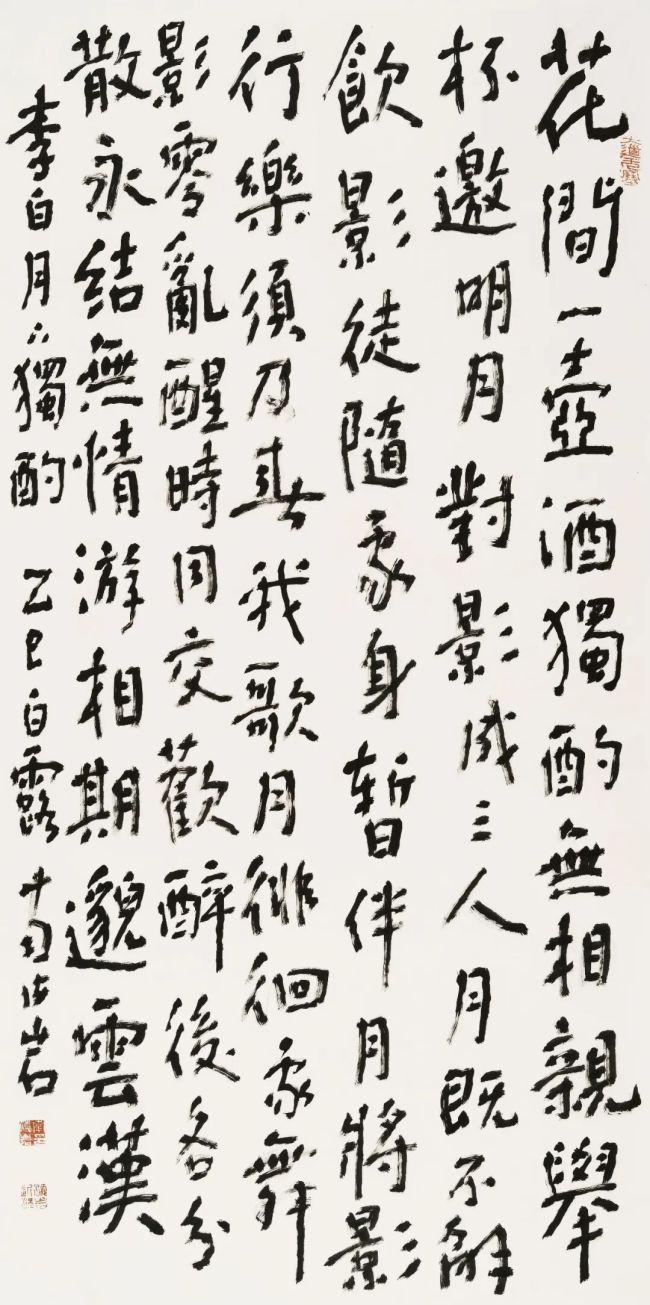 花間一壺酒獨酌無相親舉
杯邀明月對影成三人月既不解
飲影徒隨我身暫伴月將影
行樂須及春我歌月徘徊我舞
影零亂醒時同交歡醉後各分
散永結無情游相期邈雲漢
李白月下獨酌 乙巳白露